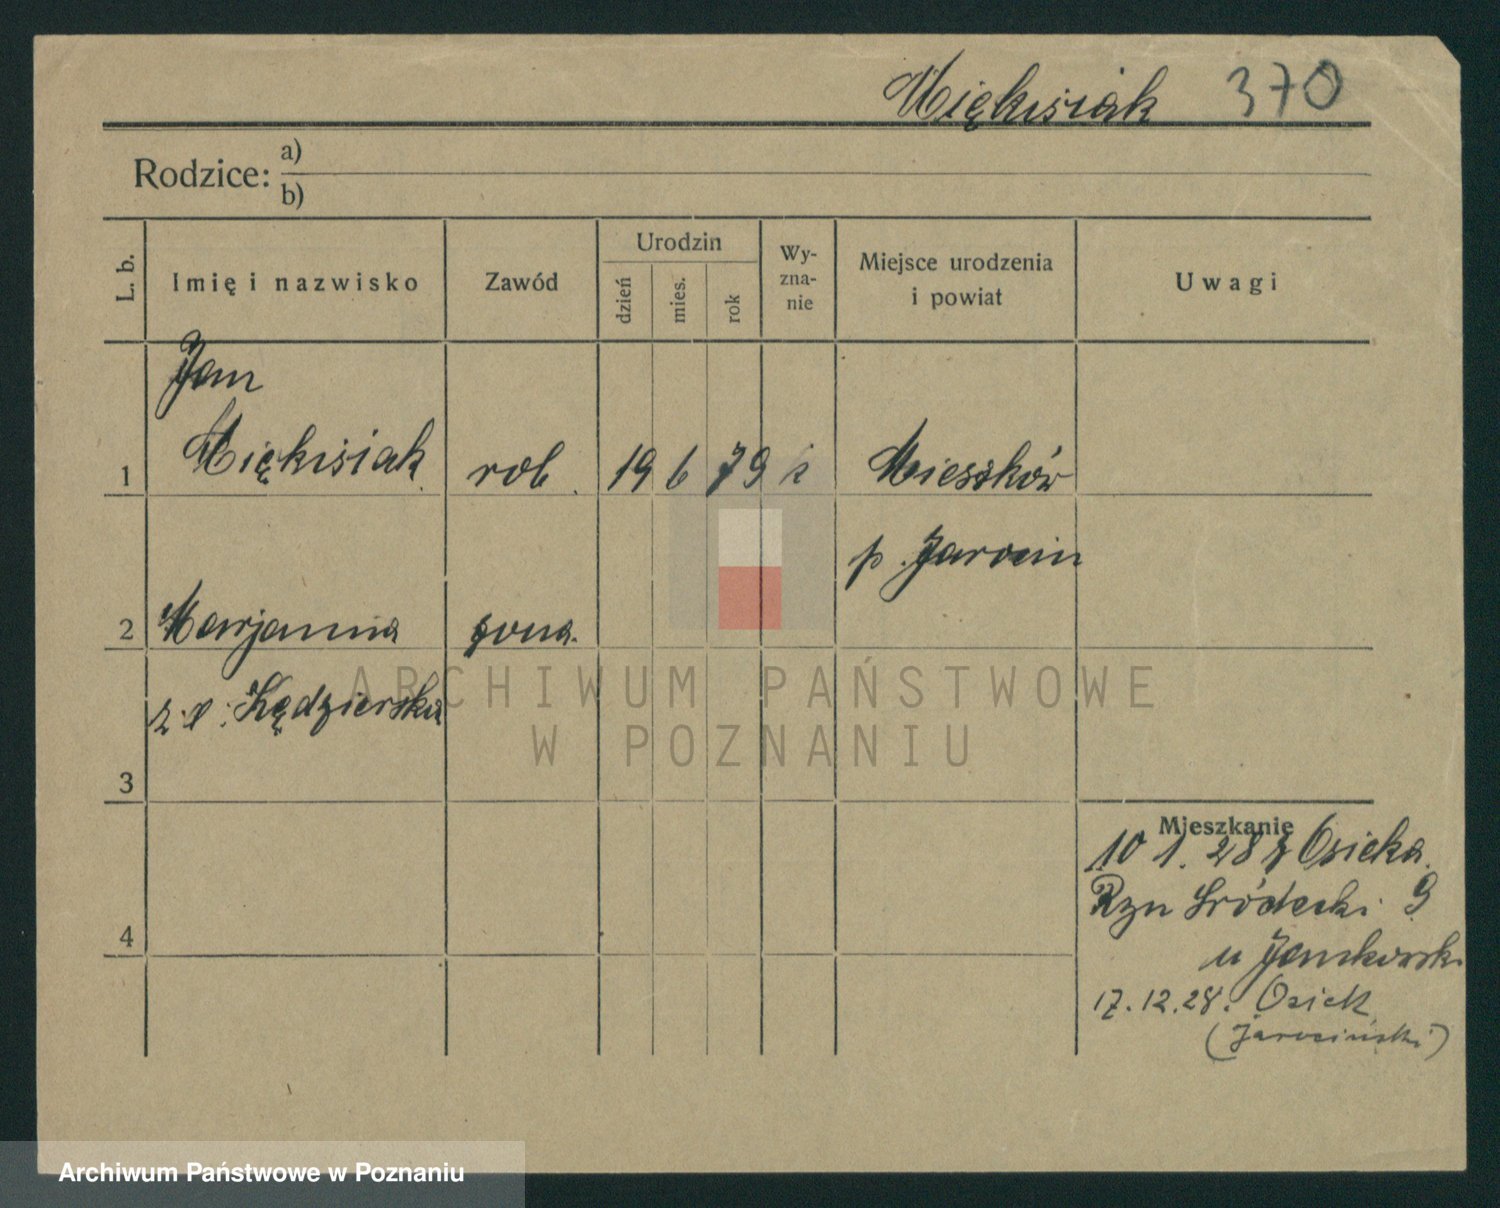 Miękisiak 370
Rodzice: a)
b)
L. b.
Imię i nazwisko
Zawód
Urodzin
dzień
mies.
rok
Wy-
zna-
nie
Miejsce urodzenia
i powiat
Uwagi
Jan
1 Miękisiak rob. 19 6 79 k Mieszków
p. Jarocin
2 Marjanna żona.
z. d. Kędzierska
3
4
Mieszkanie
10 1. 28 z Osieka.
Ryn Śródecki 9
u Jankowski
17.12.28. Osiek
(Jarociński)
ARCHIWUM PAŃSTWOWE
W POZNANIU
Archiwum Państwowe w Poznaniu